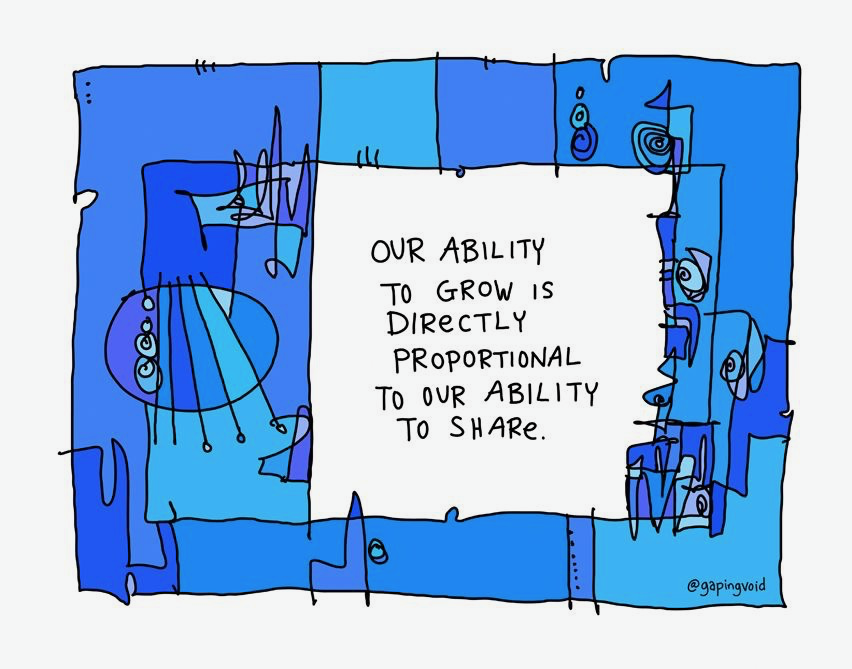 OUR ABILITY
TO GROW IS
DIReCTLY
PROPORTIONAL
TO OUR ABILITY
TO SHARe.
@gapingvoid